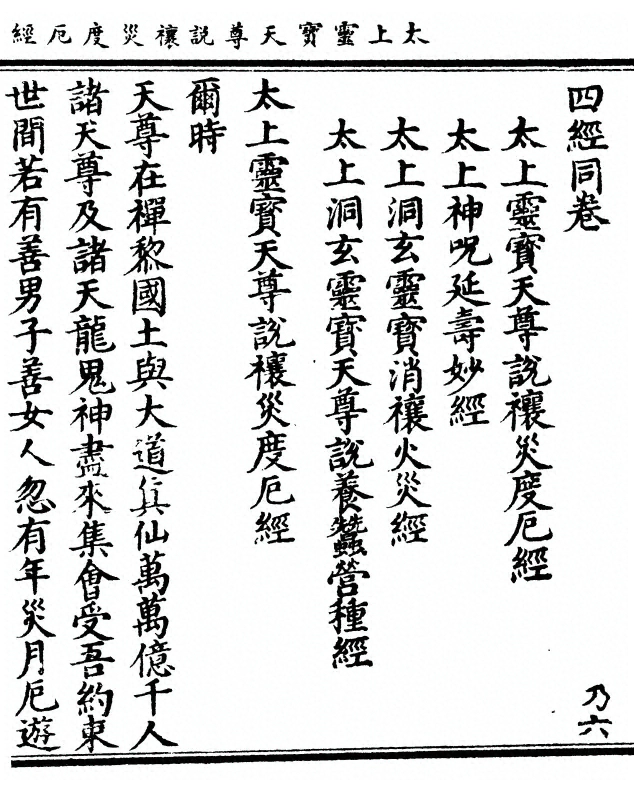 太上靈寶天尊說禳災度厄經
四經同卷
乃六
太上靈寶天尊說禳災度厄經
太上神呪延壽妙經
太上洞玄靈寶消禳火災經
太上洞玄靈寶天尊說養蠶營種經
太上靈寶天尊說禳災度厄經
爾時
天尊在禪黎國土與大道真仙萬萬億千人
諸天尊及諸天龍鬼神盡來集會受吾約束
世間若有善男子善女人忽有年災月厄遊